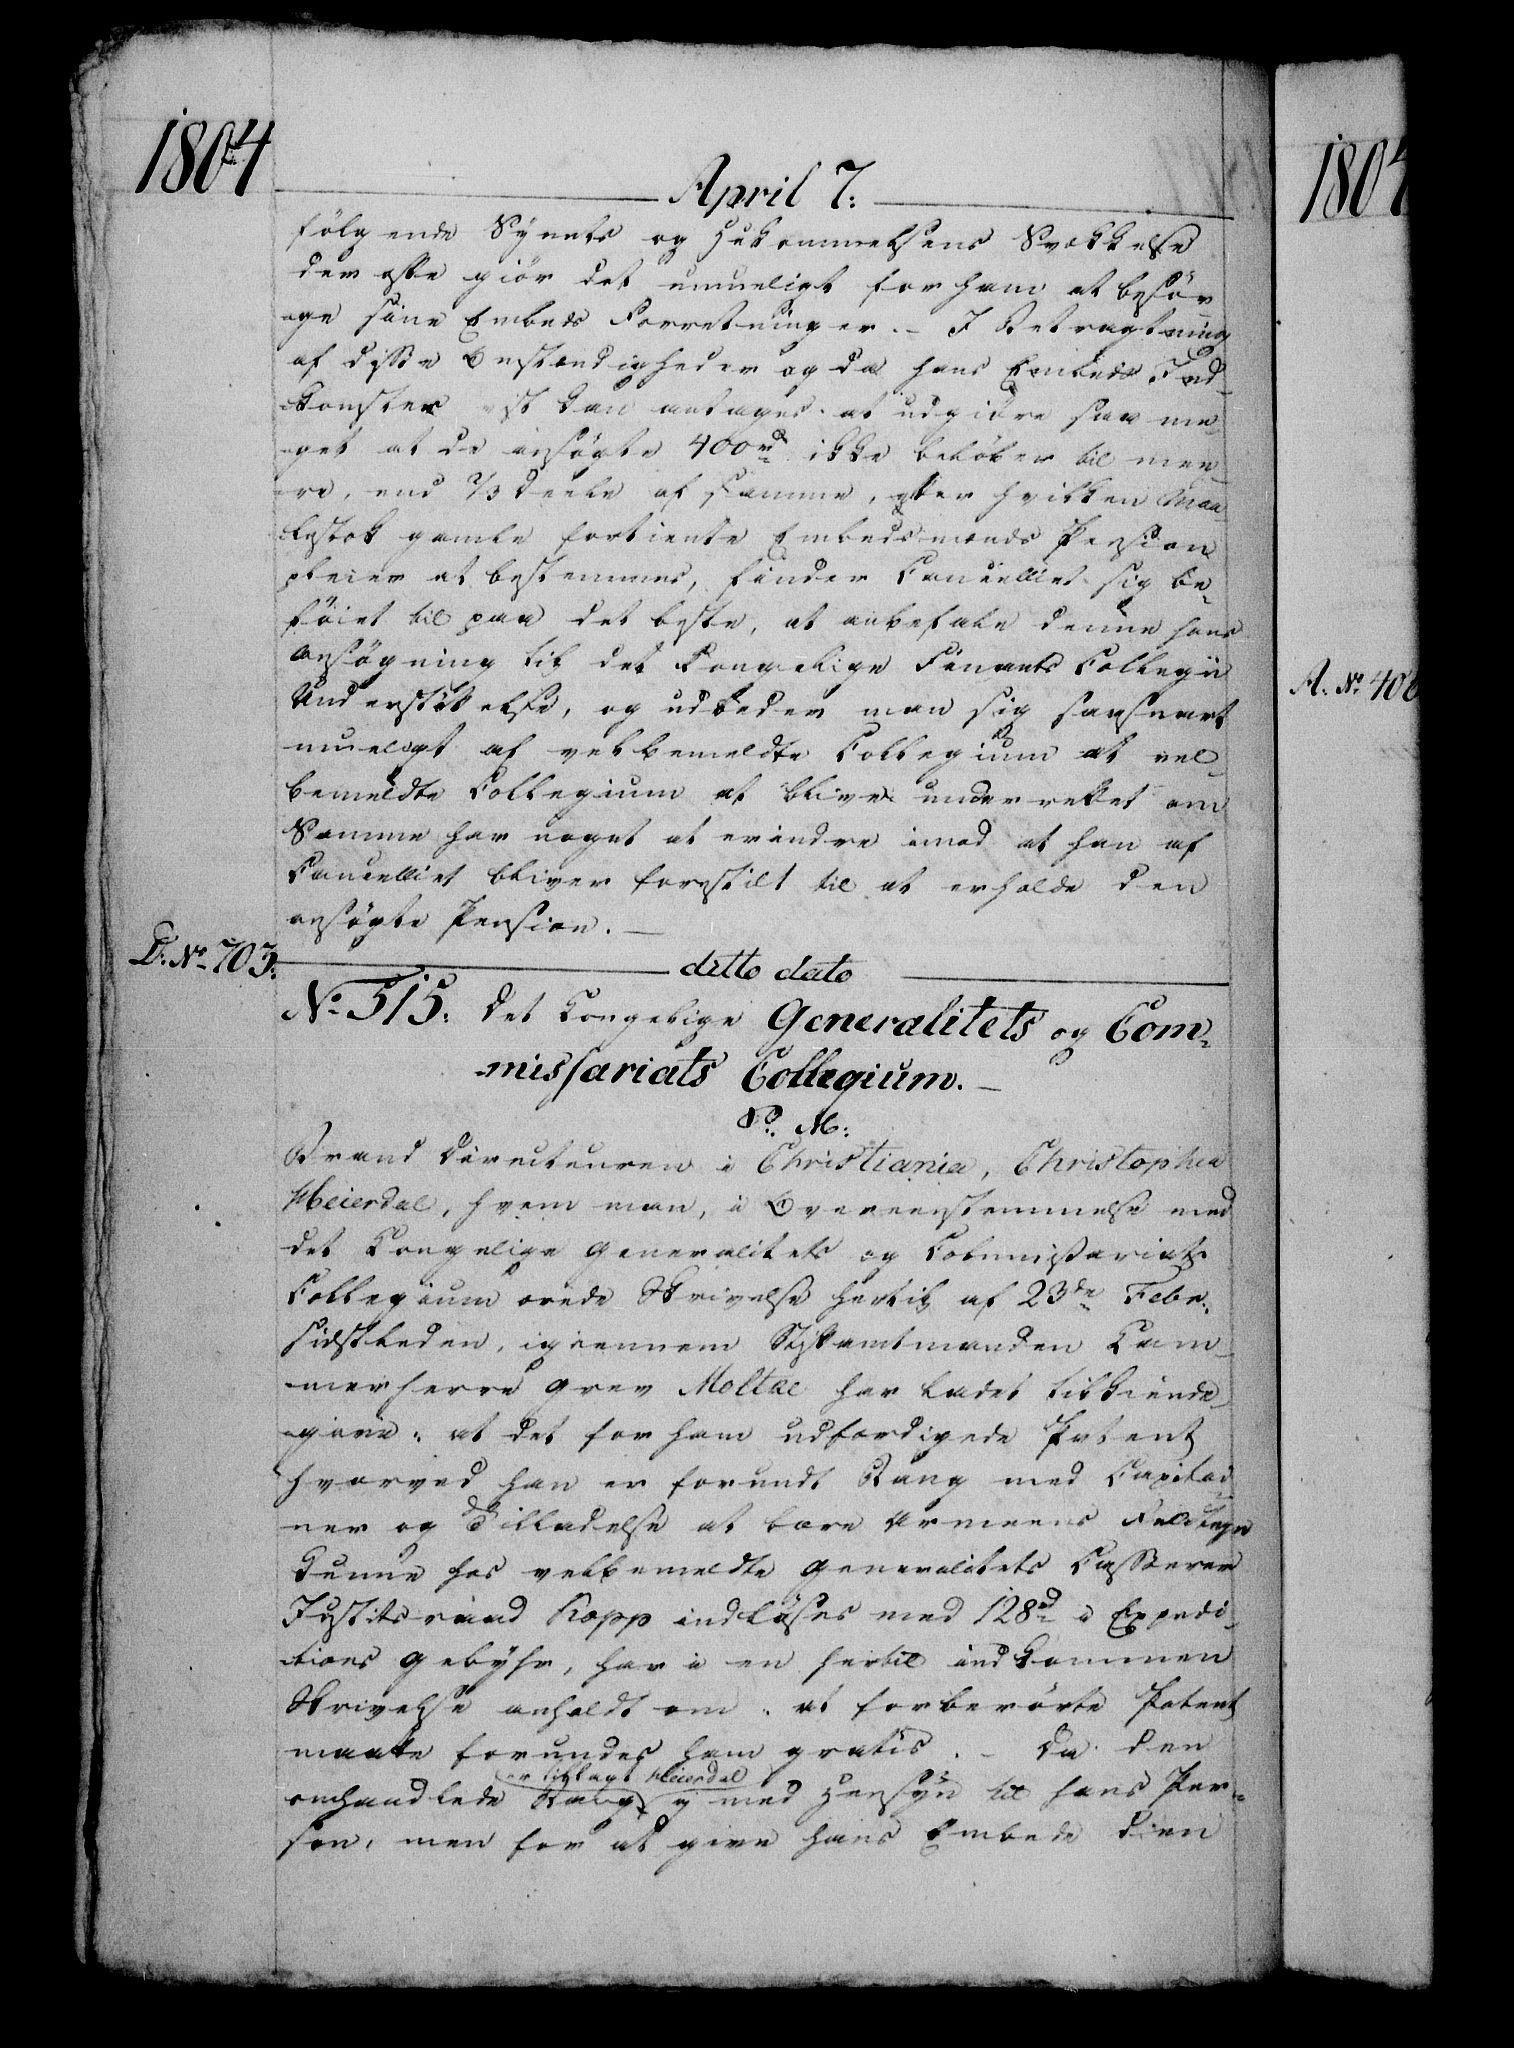 1804
April 7.
følgende Synets og Hukommelsens Svækkelse
der ofte giör det umueligt for ham at besör¬
ge sine Embeds Forretninger. – I Betragtning
af disse Omstændigheder og da hans Embeds Ind¬
komster vist kan antages at udgiöre saa me¬
get at de ansøgte 400rd ikke beløber til mee¬
re, end 2/3 Deele af samme, efter hvilken Maa¬
lestok gamle fortiente Embedsmænds Pension
pleier at bestemmes, finder Cancelliet sig be¬
föiet til paa det beste, at anbefale denne hans
Ansøgning til det Kongelige Finants Collegii
Understöttelse, og udbeder man sig saasnart
mueligt af velbemeldte Collegium at vel¬
bemeldte Collegium at blive underrettet om
Samme har noget at erindre imod at han af
Cancelliet bliver forestilt til at erholde den
ansøgte Pension. –
D. No 703.
ditto dato
No 515. Det Kongelige Generalitets og Com¬
missariats Collegium. –
P. M:
Brand Directeuren i Christiania, Christopher
Meierdal, hvem man, i Overeenstemmelse med
det Kongelige Generalitets og Commissariats
Collegium ærede Skrivelse hertil af 23de Febr.
sidstleden, igiennem Stiftamtmanden Cam¬
merherre Grev Moltke har ladet tilkiende¬
give, at det for ham udfærdigede Patent
hvorved han er forundt Rang med Capitai¬
ner og Tilladelse at bære Armeens Feldtegn
kunne hos velbemeldte Generalitets Casserer
Justitsraad Kopp indløses med 128rd i Expedi¬
tions Gebyhr, har i en hertil indkommen
Skrivelse anholdt om, at forberörte Patent
maatte forundes ham gratis. – Da den
er tillagt Meierdal
omhandlede Rang ei med Hensyn til hans Per¬
son, men for at give hans Embede den
1804
A. No 406